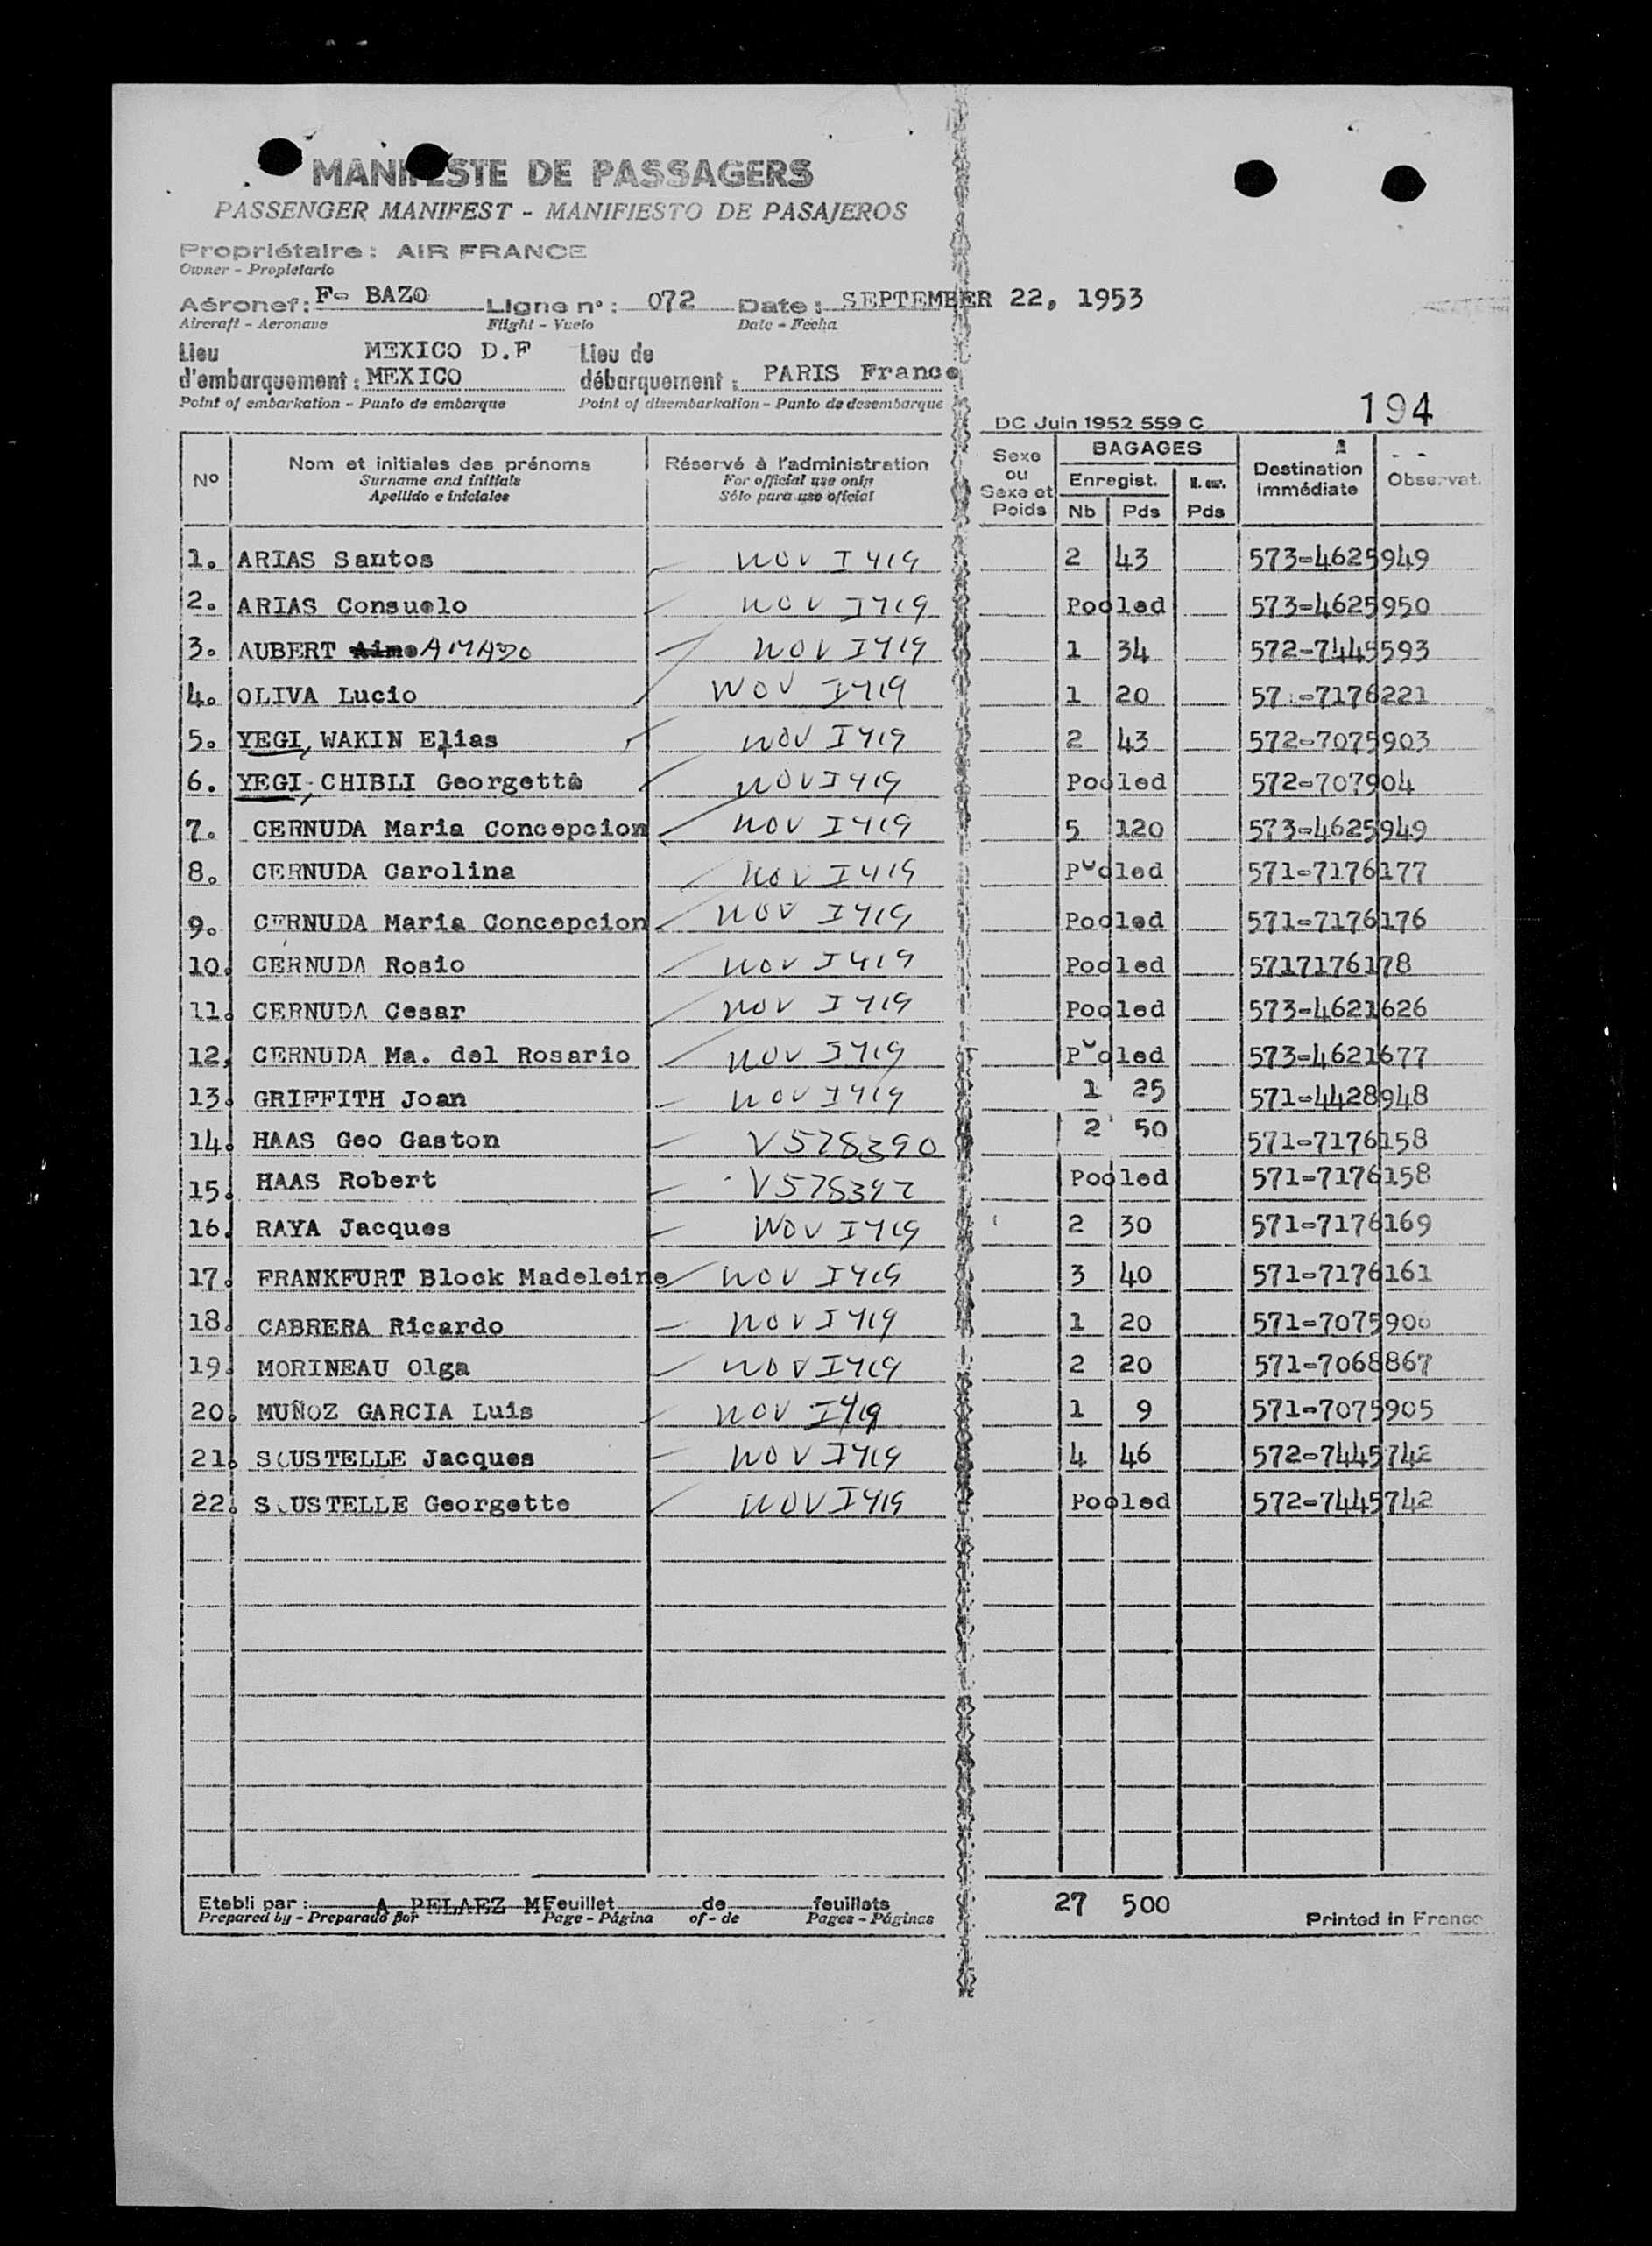 MANIFESTE DE PASSAGERS
PASSENGER MANIFEST - MANIFIESTO DE PASAJEROS
Propriétaire : AIR FRANCE
Owner - Propietario
Aéronef : F- BAZO Ligne n° : 072 Date : SEPTEMBER 22, 1953
Aircraft - Aeronave Flight - Vuelo Date - Fecha
Lieu MEXICO D.F Lieu de
d'embarquement : MEXICO débarquement : PARIS France
Point of embarkation - Punto de embarque Point of disembarkation - Punto de desembarque
194
DC Juin 1952 559 C
N° Nom et initiales des prénoms Réservé à l'administration Sexe ou Sexe et Poids BAGAGES Destination immédiate Observat.
Surname and initials For official use only Enregist.
Apellido e iniciales Sólo para uso oficial Nb Pds Pds
1. ARIAS Santos NOV I 419 2 43 573-4625949
2. ARIAS Consuelo NOV I419 Pooled 573-4625950
3. AUBERT Aime AMADO NOV I419 1 34 572-7445593
4. OLIVA Lucio NOV I419 1 20 57 -7176221
5. YEGI, WAKIN Elias NOV I419 2 43 572-7075903
6. YEGI, CHIBLI Georgette NOV I419 Pooled 572-707904
7. CERNUDA Maria Concepcion NOV I419 5 120 573-4625949
8. CERNUDA Carolina NOV I419 Pooled 571-7176177
9. CERNUDA Maria Concepcion NOV I419 Pooled 571-7176176
10. CERNUDA Rosio NOV I419 Pooled 5717176178
11. CERNUDA Cesar NOV I419 Pooled 573-4621626
12. CERNUDA Ma. del Rosario NOV I419 Pooled 573-4621677
13. GRIFFITH Joan NOV I419 1 25 571-4428948
14. HAAS Geo Gaston V578390 2 50 571-7176158
15. HAAS Robert V578392 Pooled 571-7176158
16. RAYA Jacques NOV I419 2 30 571-7176169
17. FRANKFURT Block Madeleine NOV I419 3 40 571-7176161
18. CABRERA Ricardo NOV I419 1 20 571-7075900
19. MORINEAU Olga NOV I419 2 20 571-7068867
20. MUÑOZ GARCIA Luis NOV I419 1 9 571-7075905
21. SOUSTELLE Jacques NOV I419 4 46 572-7445742
22. SOUSTELLE Georgette NOV I419 Pooled 572-7445742
Etabli par : A PELAEZ M Feuillet de feuillets 27 500
Prepared by - Preparado por Page - Página of - de Pages - Páginas Printed in France